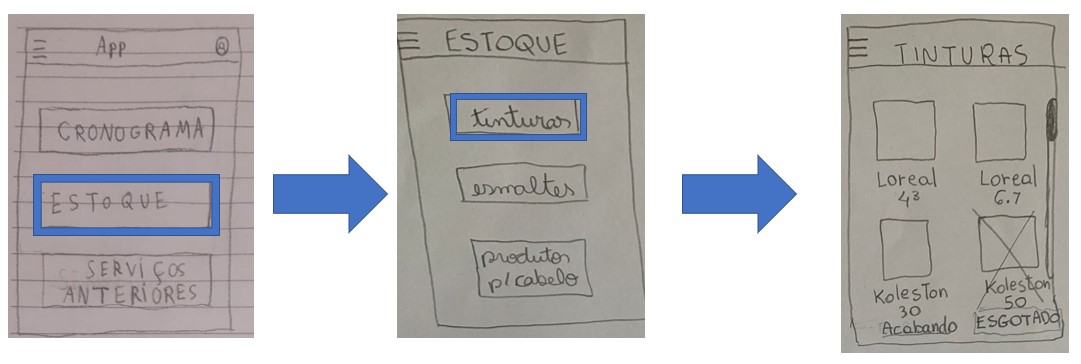 App
CRONOGRAMA
ESTOQUE
SERVIÇOS
ANTERIORES
ESTOQUE
tinturas
esmaltes
produtos
p/ cabelo
TINTURAS
Loreal
4³
Loreal
6.7
Koleston
30
Acabando
Koleston
50
ESGOTADO